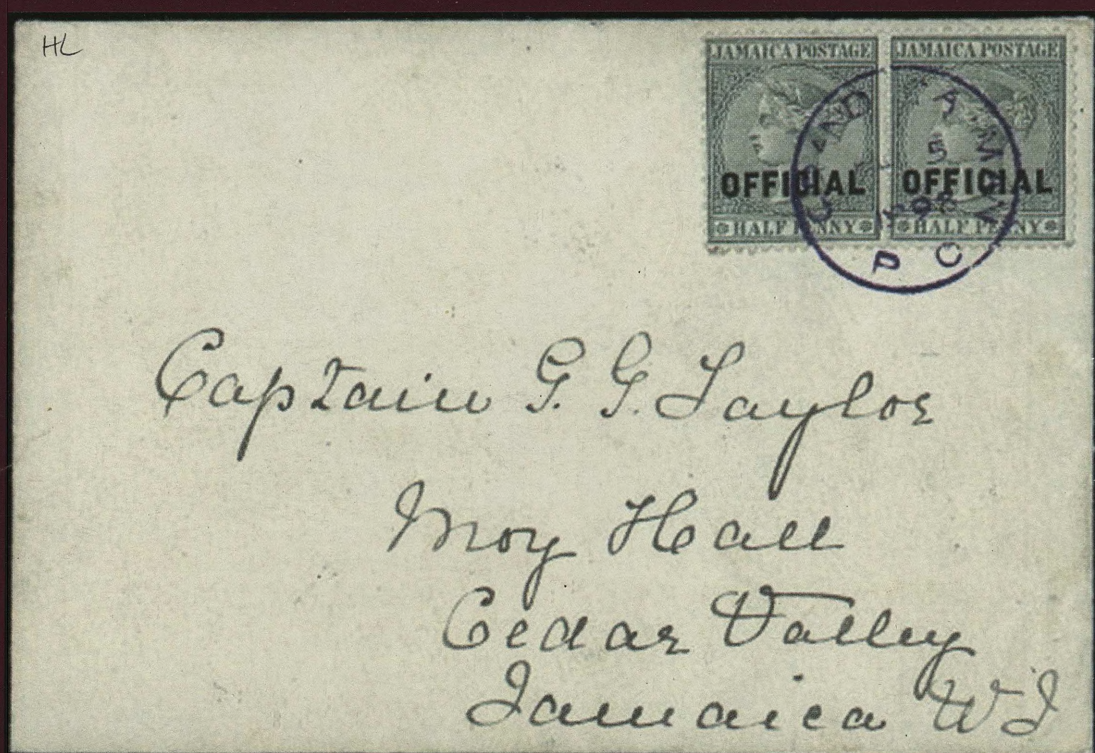 HL
JAMAICA POSTAGE
OFFICIAL
HALF PENNY
JAMAICA POSTAGE
OFFICIAL
HALF PENNY
GRAND CAYMAN
5
98
P O
Captain G. G. Taylor
Moy Hall
Cedar Valley
Jamaica W I